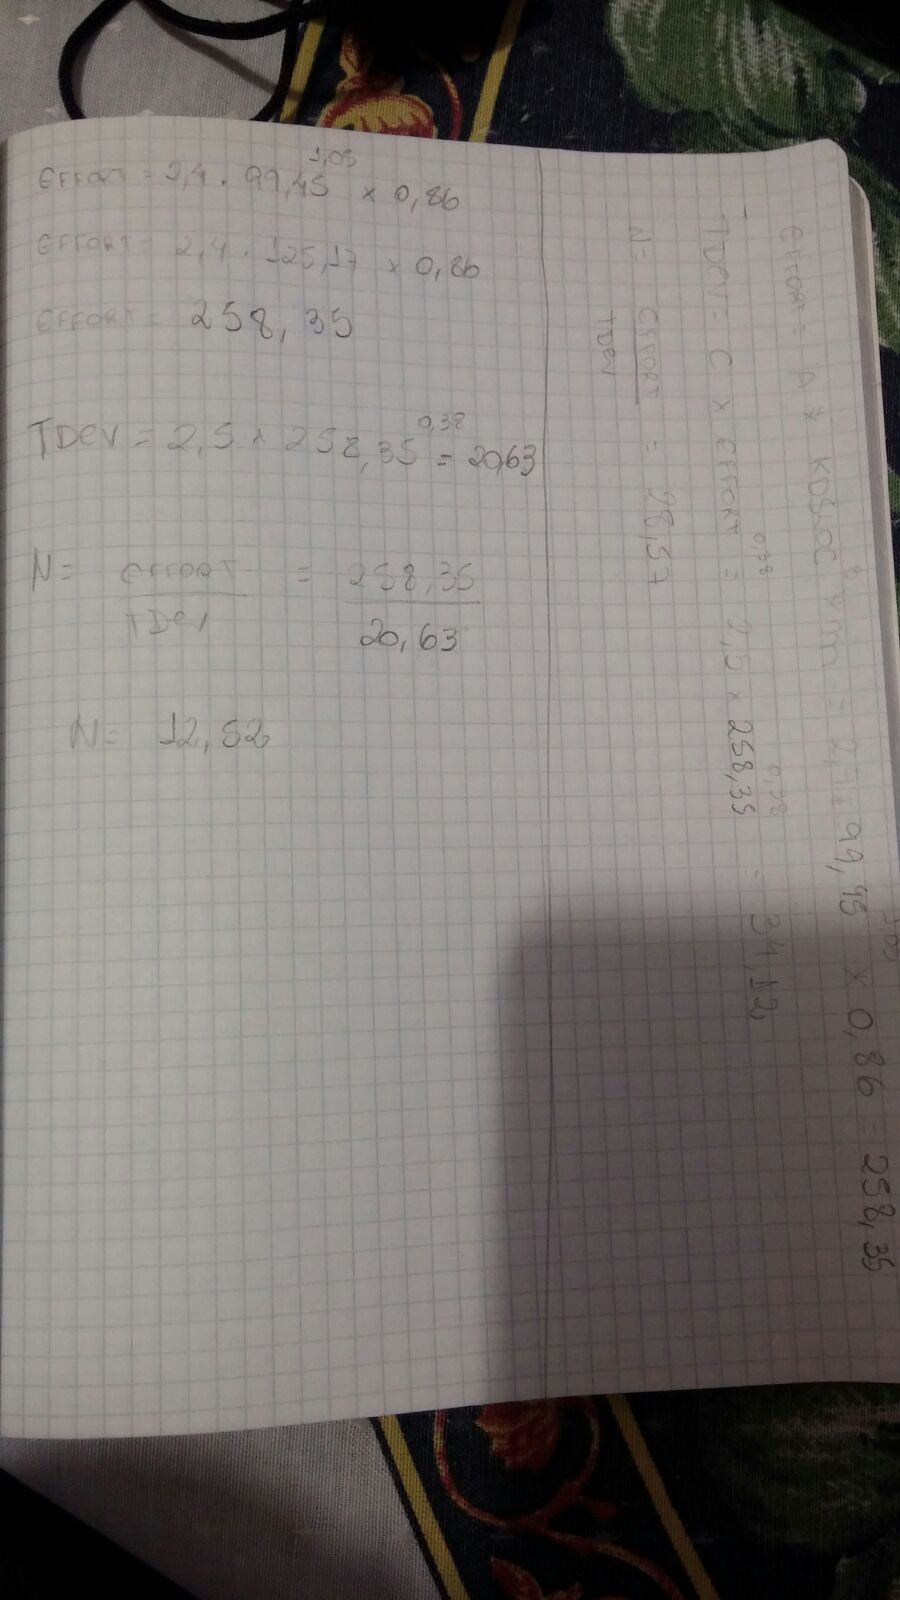 EFFORT = 2,4 . 99,45^1,05 x 0,86
EFFORT = 2,4 . 125,17 x 0,86
EFFORT = 258,35
TDEV = 2,5 x 258,35^0,38 = 20,63
N = EFFORT / TDEV = 258,35 / 20,63
N = 12,52
EFFORT = A * KDSLOC^b x m = 2,4 x 99,45^1,05 x 0,86 = 258,35
TDEV = C x EFFORT^0,38 = 2,5 x 258,35^0,38 = 34,12
N = EFFORT / TDEV = 28,57